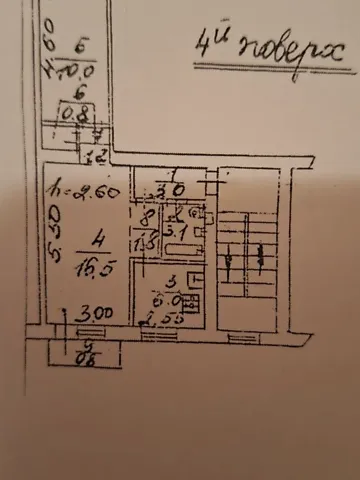 4й поверх
4.60
5
10.0
6
0.8
1.2
h=2.60
1
3.0
5.50
4
16.5
8
1.3
2
3.1
3
6.0
2.55
3.00
9
0.6